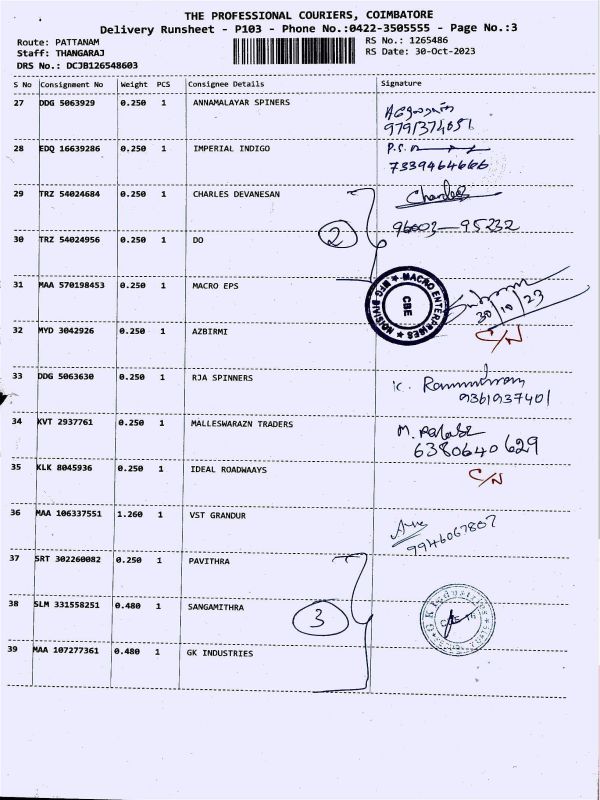 THE PROFESSIONAL COURIERS, COIMBATORE
Delivery Runsheet - P103 - Phone No.:0422-3505555 - Page No.:3
Route: PATTANAM RS No.: 1265486
Staff: THANGARAJ RS Date: 30-Oct-2023
DRS No.: DCJB126548603
S No Consignment No Weight PCS Consignee Details Signature
27 DDG 5063929 0.250 1 ANNAMALAYAR SPINERS
9791374051
28 EDQ 16639286 0.250 1 IMPERIAL INDIGO P.S.
7339464666
29 TRZ 54024684 0.250 1 CHARLES DEVANESAN Charles
30 TRZ 54024956 0.250 1 DO 2 96003-95232
31 MAA 570198453 0.250 1 MACRO EPS MACRO ENTERPRISES MFG DIVISION CBE 30/10/23
32 MYD 3042926 0.250 1 AZBIRMI C/N
33 DDG 5063630 0.250 1 RJA SPINNERS K.
9361937401
34 KVT 2937761 0.250 1 MALLESWARAZN TRADERS M.
6380640629
35 KLK 8045936 0.250 1 IDEAL ROADWAAYS C/N
36 MAA 106337551 1.260 1 VST GRANDUR
9946067807
37 SRT 302260082 0.250 1 PAVITHRA
38 SLM 331558251 0.480 1 SANGAMITHRA 3 G K Industries
39 MAA 107277361 0.480 1 GK INDUSTRIES